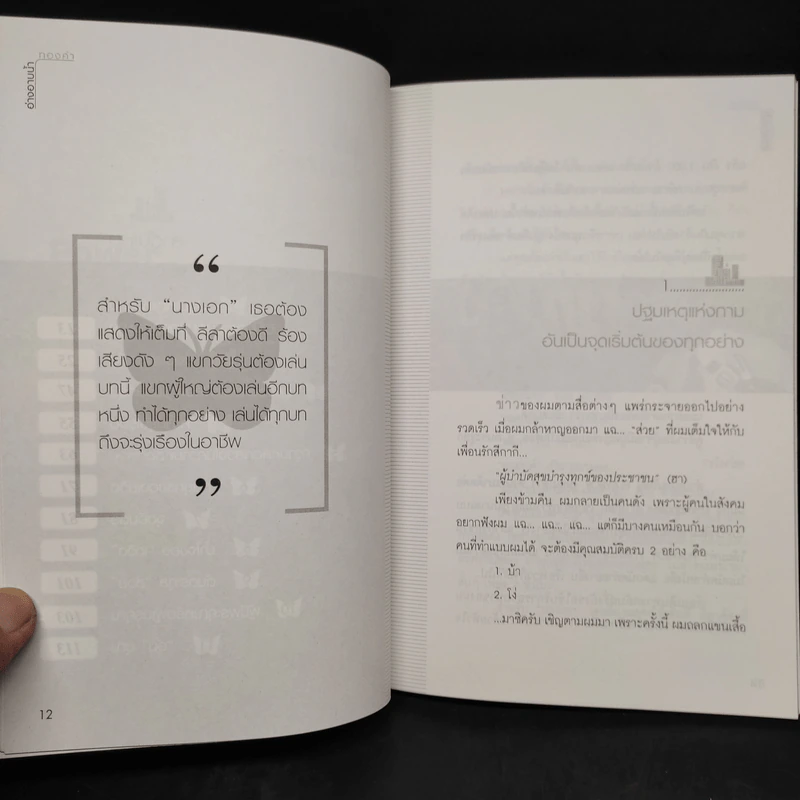 อ่างอาบน้ำ
ทองคำ
“
สำหรับ “นางเอก” เธอต้อง
แสดงให้เต็มที่ ลีลาต้องดี ร้อง
เสียงดัง ๆ แขกวัยรุ่นต้องเล่น
บทนี้ แขกผู้ใหญ่ต้องเล่นอีกบท
หนึ่ง ทำได้ทุกอย่าง เล่นได้ทุกบท
ถึงจะรุ่งเรืองในอาชีพ
”
12
1
ปฐมเหตุแห่งกาม
อันเป็นจุดเริ่มต้นของทุกอย่าง
ข่าวของผมตามสื่อต่างๆ แพร่กระจายออกไปอย่าง
รวดเร็ว เมื่อผมกล้าหาญออกมา แฉ... “ส่วย” ที่ผมเต็มใจให้กับ
เพื่อนรักสีกากี...
“ผู้บำบัดสุขบำรุงทุกข์ของประชาชน” (ฮา)
เพียงข้ามคืน ผมกลายเป็นคนดัง เพราะผู้คนในสังคม
อยากฟังผม แฉ... แฉ... แฉ... แต่ก็มีบางคนเหมือนกัน บอกว่า
คนที่ทำแบบผมได้ จะต้องมีคุณสมบัติครบ 2 อย่าง คือ
1. บ้า
2. โง่
...มาซิครับ เชิญตามผมมา เพราะครั้งนี้ ผมถลกแขนเสื้อ